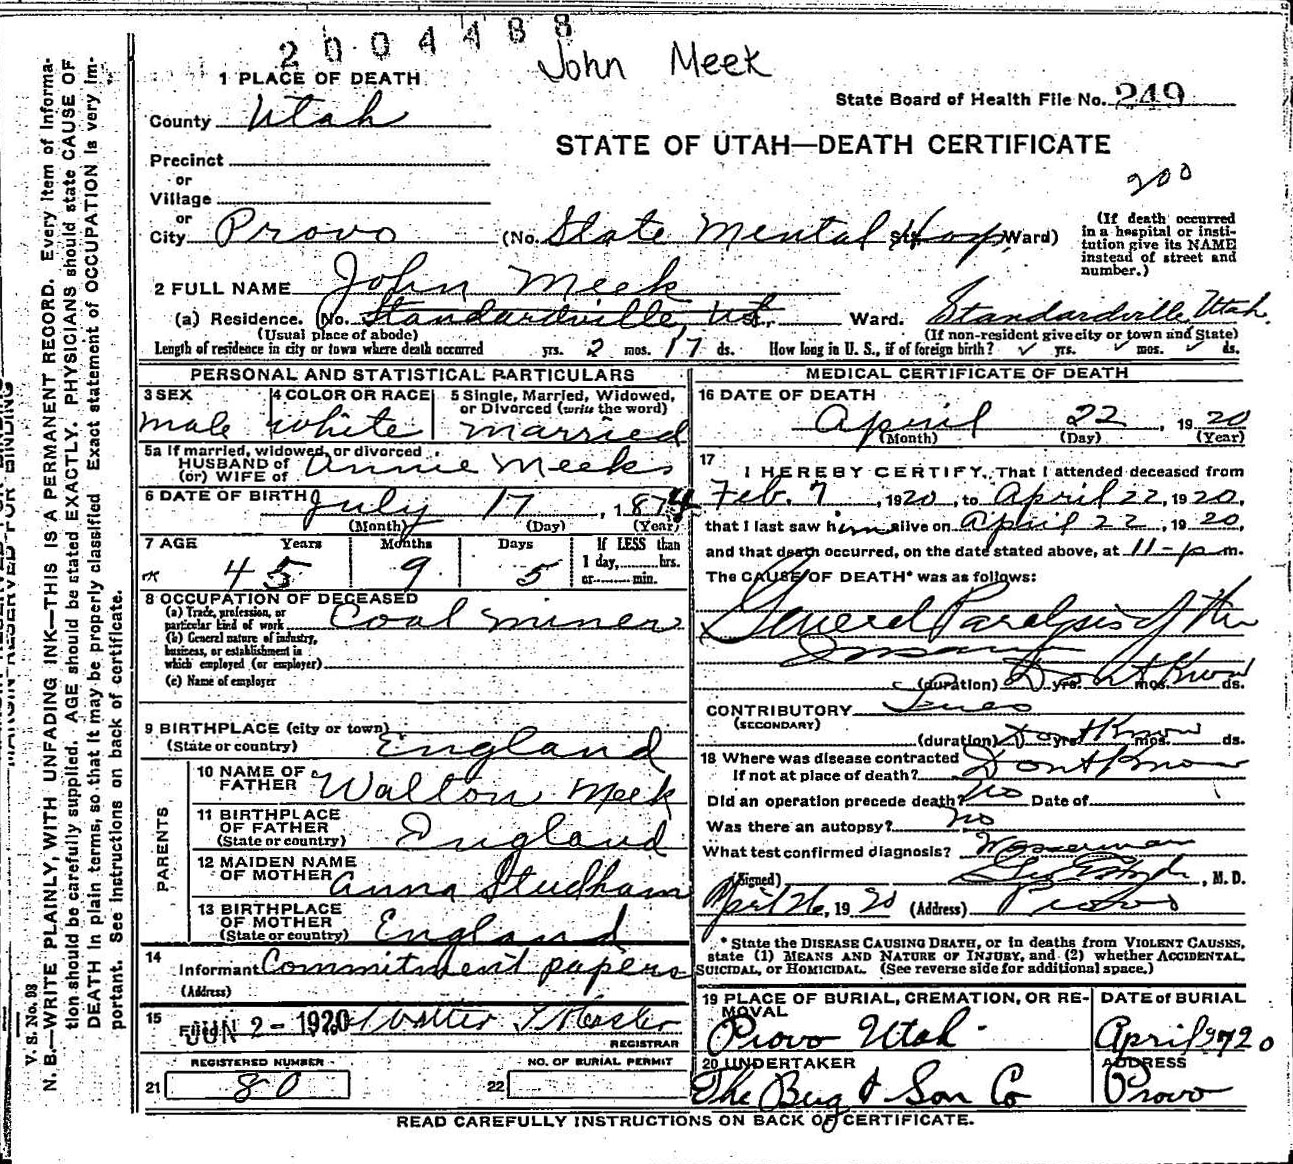 2004488
John Meek
1 PLACE OF DEATH
State Board of Health File No. 249
County Utah
STATE OF UTAH—DEATH CERTIFICATE
Precinct
or
Village
200
or
City Provo (No. State Mental Hosp. St. Ward)
(If death occurred in a hospital or insti-
tution give its NAME
instead of street and
number.)
2 FULL NAME John Meek
(a) Residence. (No. Standardville, Ut. St. Ward. Standardville, Utah.
(Usual place of abode) (If non-resident give city or town and State)
Length of residence in city or town where death occurred yrs. 2 mos. 17 ds. How long in U. S., if of foreign birth? ✓ yrs. ✓ mos. ✓ ds.
PERSONAL AND STATISTICAL PARTICULARS
3 SEX
male
4 COLOR OR RACE
white
5 Single, Married, Widowed,
or Divorced (write the word)
married
5a If married, widowed, or divorced
HUSBAND of
(or) WIFE of Annie Meeks
6 DATE OF BIRTH July 17, 1874
(Month) (Day) (Year)
7 AGE Years Months Days If LESS than
1 day, hrs.
or min.
45 9 5
8 OCCUPATION OF DECEASED
(a) Trade, profession, or
particular kind of work Coal miner
(b) General nature of industry,
business, or establishment in
which employed (or employer)
(c) Name of employer
9 BIRTHPLACE (city or town)
(State or country) England
PARENTS
10 NAME OF
FATHER Walton Meek
11 BIRTHPLACE
OF FATHER
(State or country) England
12 MAIDEN NAME
OF MOTHER Anna Studham
13 BIRTHPLACE
OF MOTHER
(State or country) England
14
Informant Commitment papers
(Address)
15
Filed JUN 2 - 1920 Walter T Hasler
REGISTRAR
REGISTERED NUMBER
21 80
NO. OF BURIAL PERMIT
22
MEDICAL CERTIFICATE OF DEATH
16 DATE OF DEATH
April 22, 1920
(Month) (Day) (Year)
17
I HEREBY CERTIFY, That I attended deceased from
Feb. 7, 1920, to April 22, 1920,
that I last saw him alive on April 22, 1920,
and that death occurred, on the date stated above, at 11-p m.
The CAUSE OF DEATH* was as follows:
General Paralysis of the
Insane
(duration) Dont Know yrs. mos. ds.
CONTRIBUTORY Lues
(SECONDARY)
(duration) Dont Know yrs. mos. ds.
18 Where was disease contracted
If not at place of death? Dont Know
Did an operation precede death? no Date of
Was there an autopsy? no
What test confirmed diagnosis? Wasserman
(Signed) , M. D.
April 26, 1920 (Address) Provo
* State the DISEASE CAUSING DEATH, or in deaths from VIOLENT CAUSES,
state (1) MEANS AND NATURE OF INJURY, and (2) whether ACCIDENTAL,
SUICIDAL, or HOMICIDAL. (See reverse side for additional space.)
19 PLACE OF BURIAL, CREMATION, OR RE-
MOVAL
Provo Utah
DATE of BURIAL
April 27 20
20 UNDERTAKER
The Berg & Son Co
ADDRESS
Provo
READ CAREFULLY INSTRUCTIONS ON BACK OF CERTIFICATE.
MARGIN RESERVED FOR BINDING
V. S. No. 98
N. B.—WRITE PLAINLY, WITH UNFADING INK—THIS IS A PERMANENT RECORD. Every item of informa-
tion should be carefully supplied. AGE should be stated EXACTLY. PHYSICIANS should state CAUSE OF
DEATH in plain terms, so that it may be properly classified. Exact statement of OCCUPATION is very im-
portant. See instructions on back of certificate.